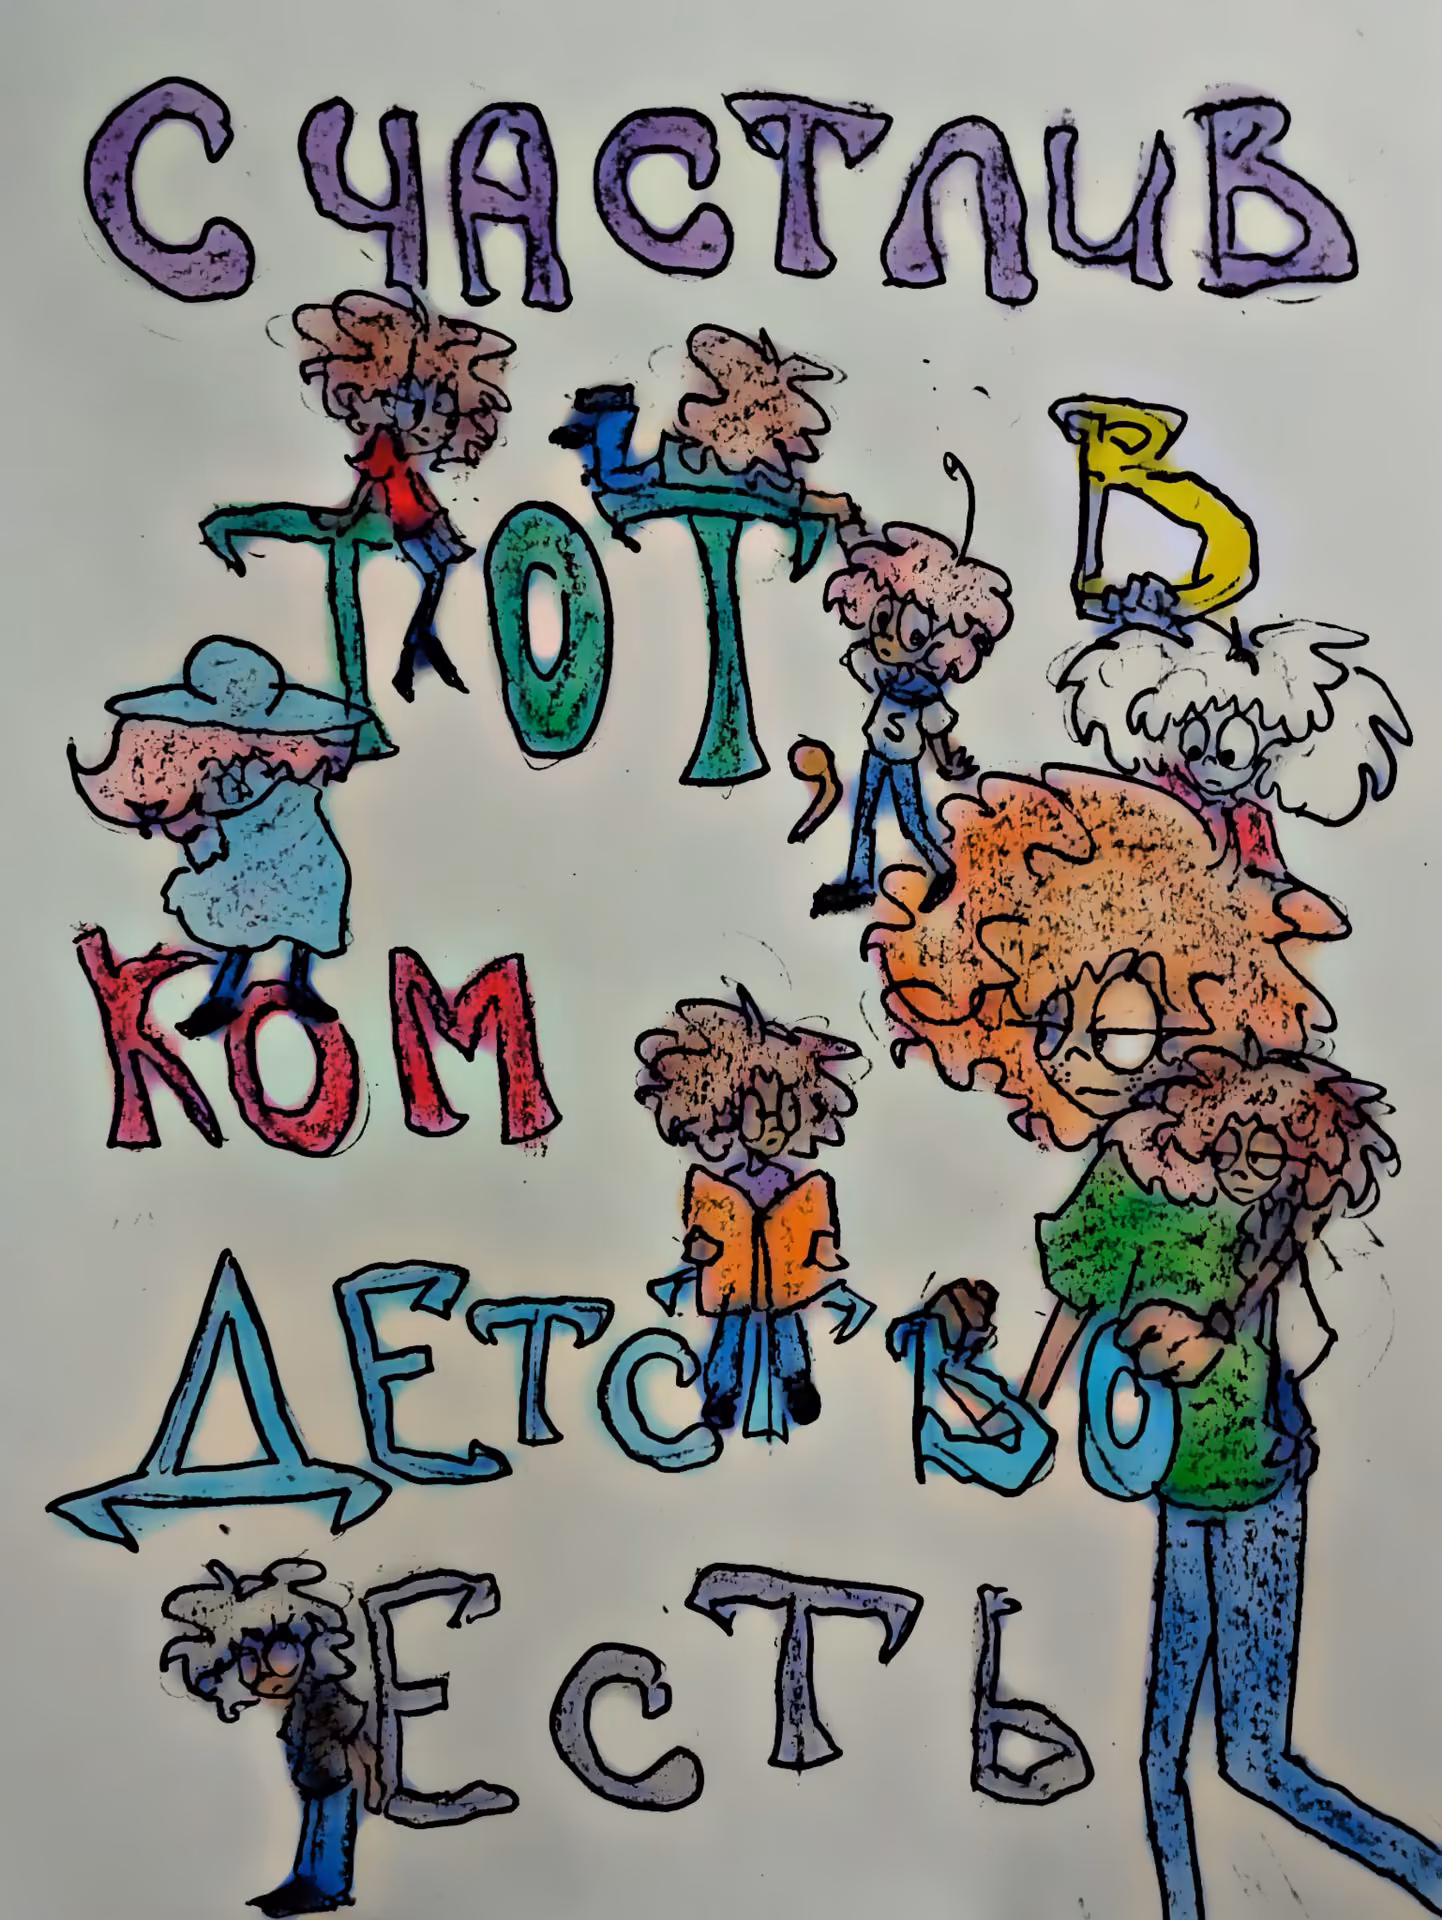 СЧАСТЛИВ
ТОТ, В
КОМ
ДЕТСТВО
ЕСТЬ
S